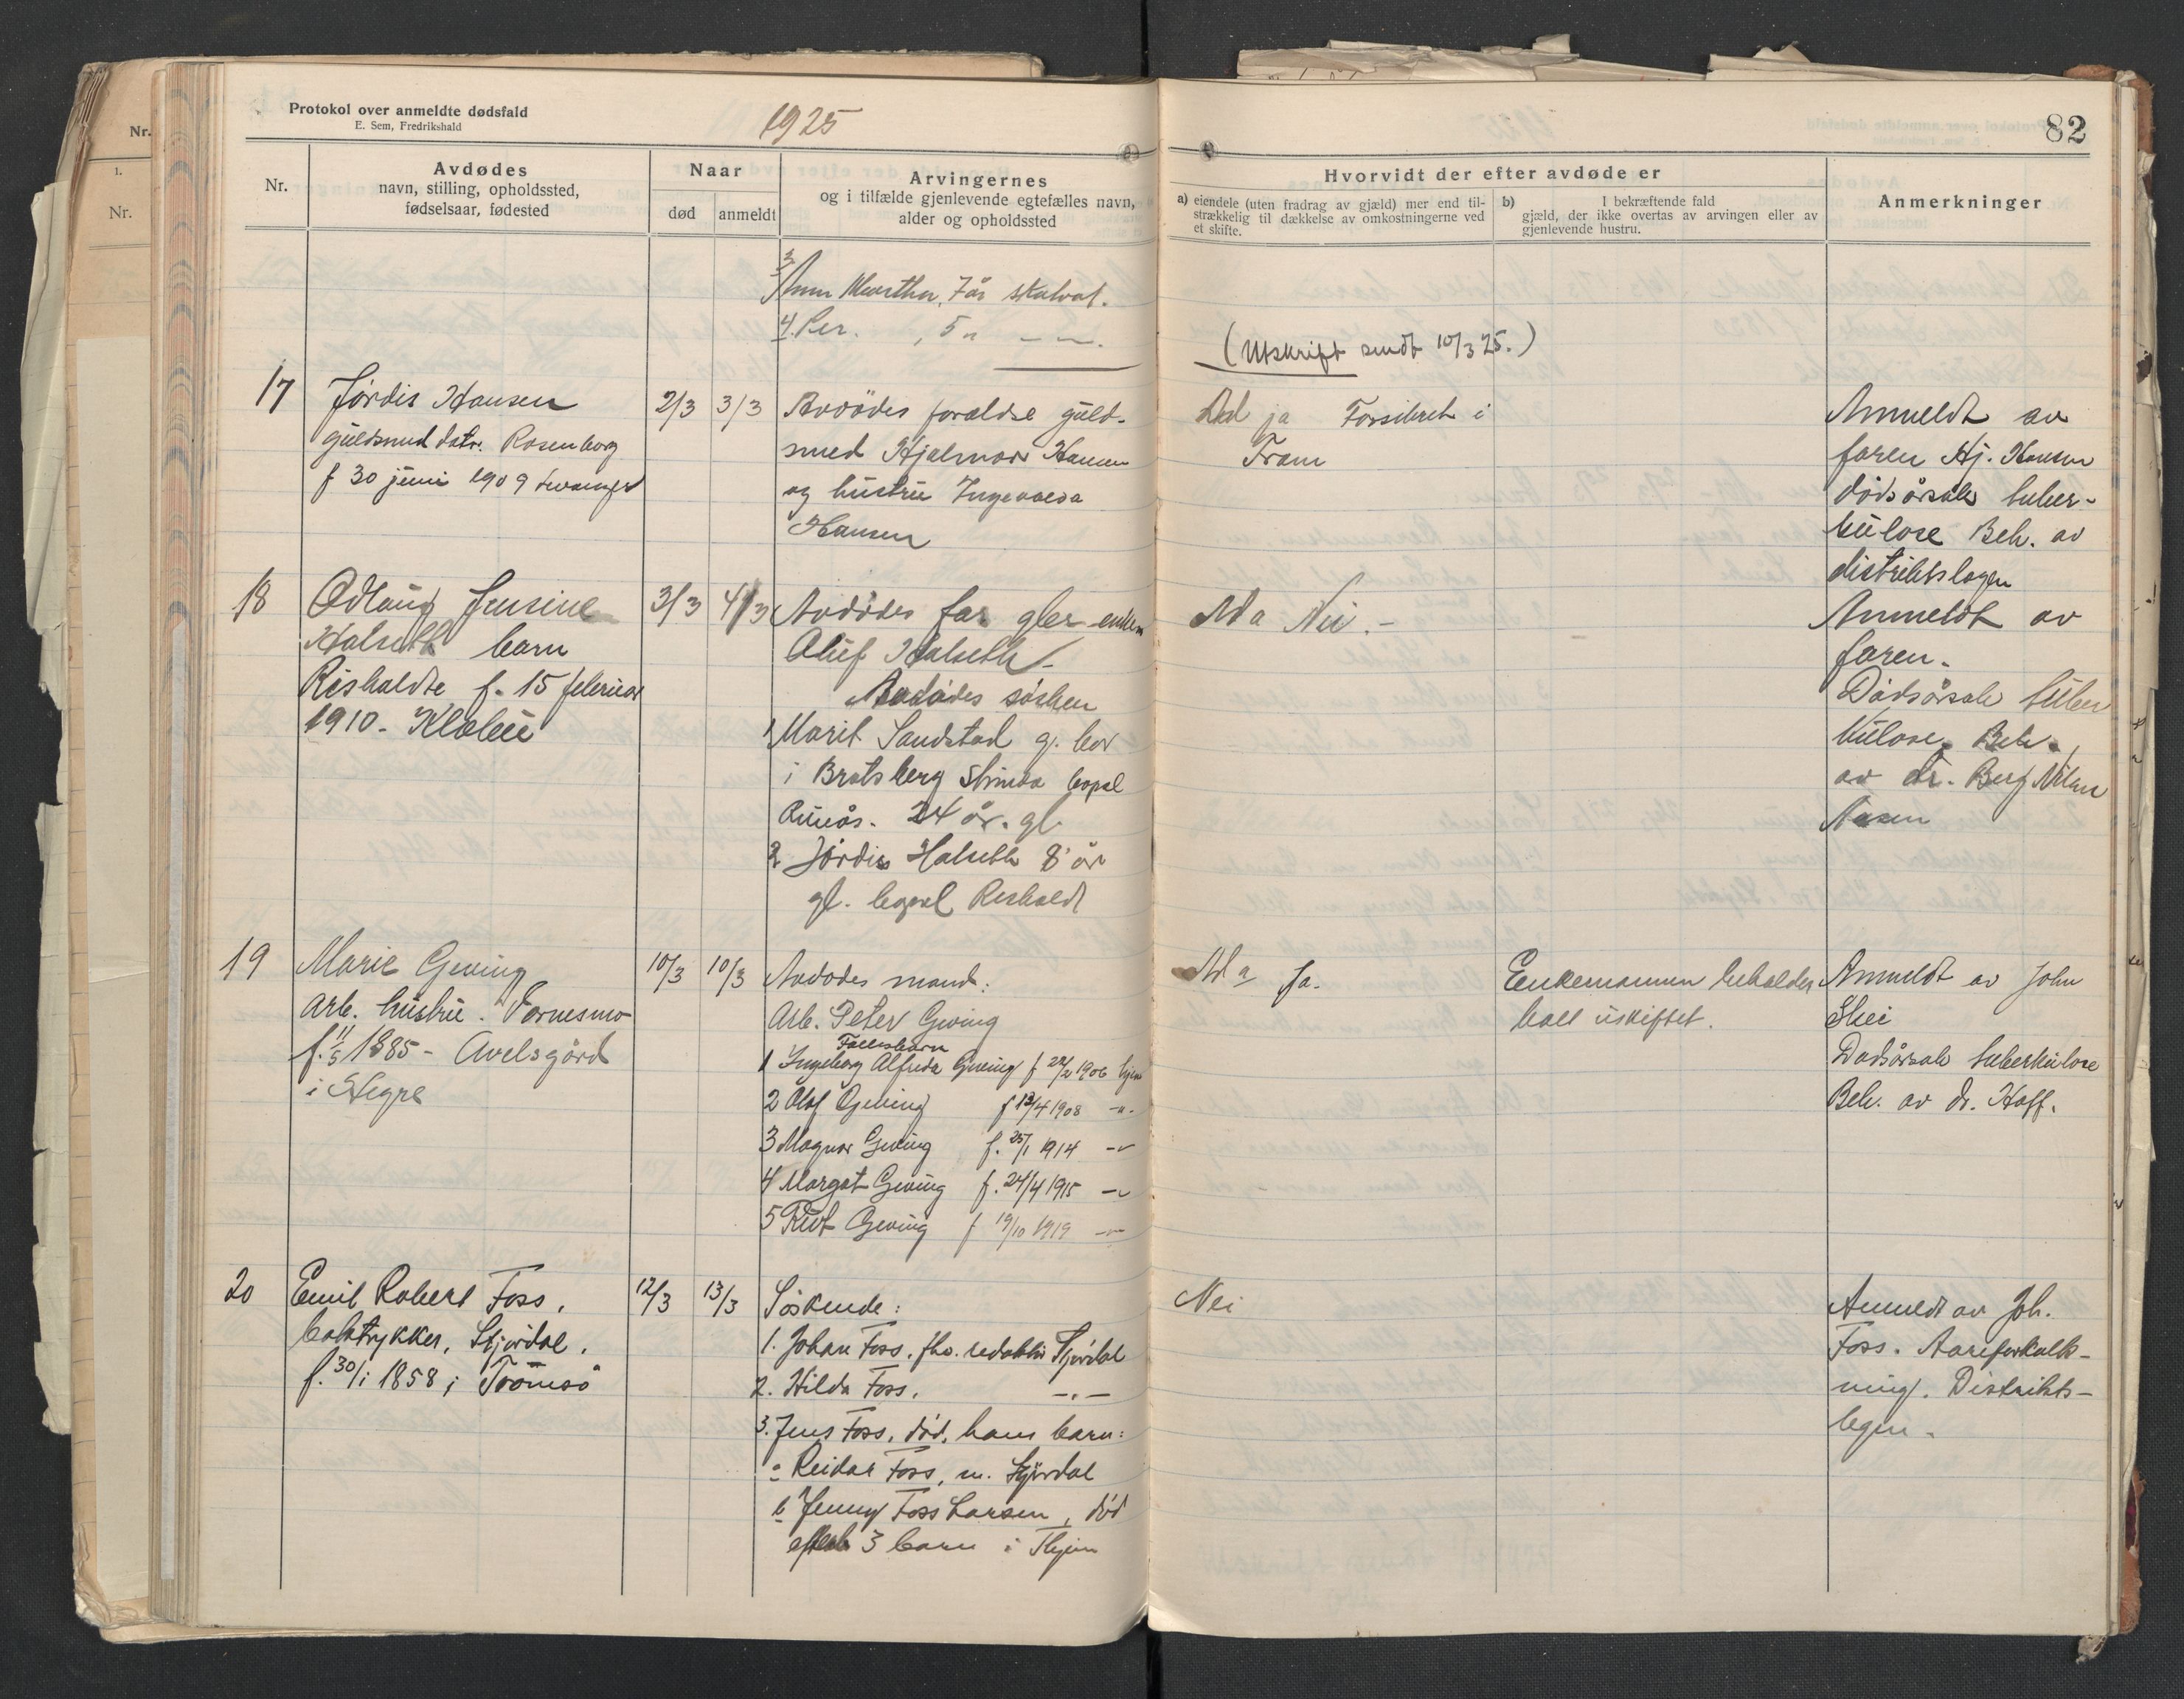 Nr.
1.
Nr.
Protokol over anmeldte dødsfald
E. Sem, Fredrikshald
1925
Nr.
Avdødes
navn, stilling, opholdssted,
fødselsaar, fødested
Naar
død
anmeldt
Arvingernes
og i tilfælde gjenlevende egtefælles navn,
alder og opholdssted
3
Ann Martha, 7 år
4. Per. , 5 "
17
Jørdis Hansen
guldsmed datr. Rosenborg
f 30 juni 1909 Levanger
2/3
3/3
Avdødes foreldre guld-
smed Hjalmar Hansen
og hustru
Hansen
18
Odlaug Jensine
Halseth barn
Rishaldte f. 15 februar
1910. Klæbu
3/3
4/3
Avdødes far
Oluf Halseth
Avdødes søsken
1 Marit Sandstad g. bor
i Bratsberg Strinda bopel
24 år. gl.
2 Jørdis Halseth 8 år
gl. bopel
19
Marie Geving
Arb. hustru. Vernesmo
f. 11/5 1885 - Avelsgård
i Hegre
10/3
10/3
Avdødes mand:
Arb. Peter Geving
Fællesbarn
1 Ingeborg Alfreda Geving f 22/2 1906 hjem
2 Olaf Geving f 13/4 1908 -"-
3 Magnar Geving f. 25/1 1914 -"-
4 Margot Geving f. 24/4 1915 -"-
5 Geving f 19/10 1919 -"-
20
Emil Robert Foss,
boktrykker, Stjørdal,
f. 30/1 1858 i Tromsø
12/3
13/3
Søskende:
1. Johan Foss, fhv. redaktør Stjørdal
2. Hilda Foss. -"-
3. Jens Foss, død, hans barn:
a Reidar Foss, n. Stjørdal
b Jenny Foss Larsen, død
efterl. 3 barn i Thjem
82
Hvorvidt der efter avdøde er
a) eiendele (uten fradrag av gjæld) mer end til-
strækkelig til dækkelse av omkostningerne ved
et skifte.
b) I bekræftende fald
gjæld, der ikke overtas av arvingen eller av
gjenlevende hustru.
Anmerkninger
(Utskrift sendt 10/3 25.)
Ad ja Forsikret i
Fram
Anmeldt av
faren Hj. Hansen
dødsårsak tuber-
kulose Beh. av
distriktslægen
Ad a Nei.-
Anmeldt av
faren.
Dødsårsak tuber
kulose. Beh.
av dr. Berg
Ad a Ja.
Enkemannen beholder
boet uskiftet.
Anmeldt av John
Skei
Dødsårsak tuberkulose
Beh. av dr. Hoff.
Nei
Anmeldt av Joh.
Foss. Aareforkalk-
ning. Distrikts-
legen.